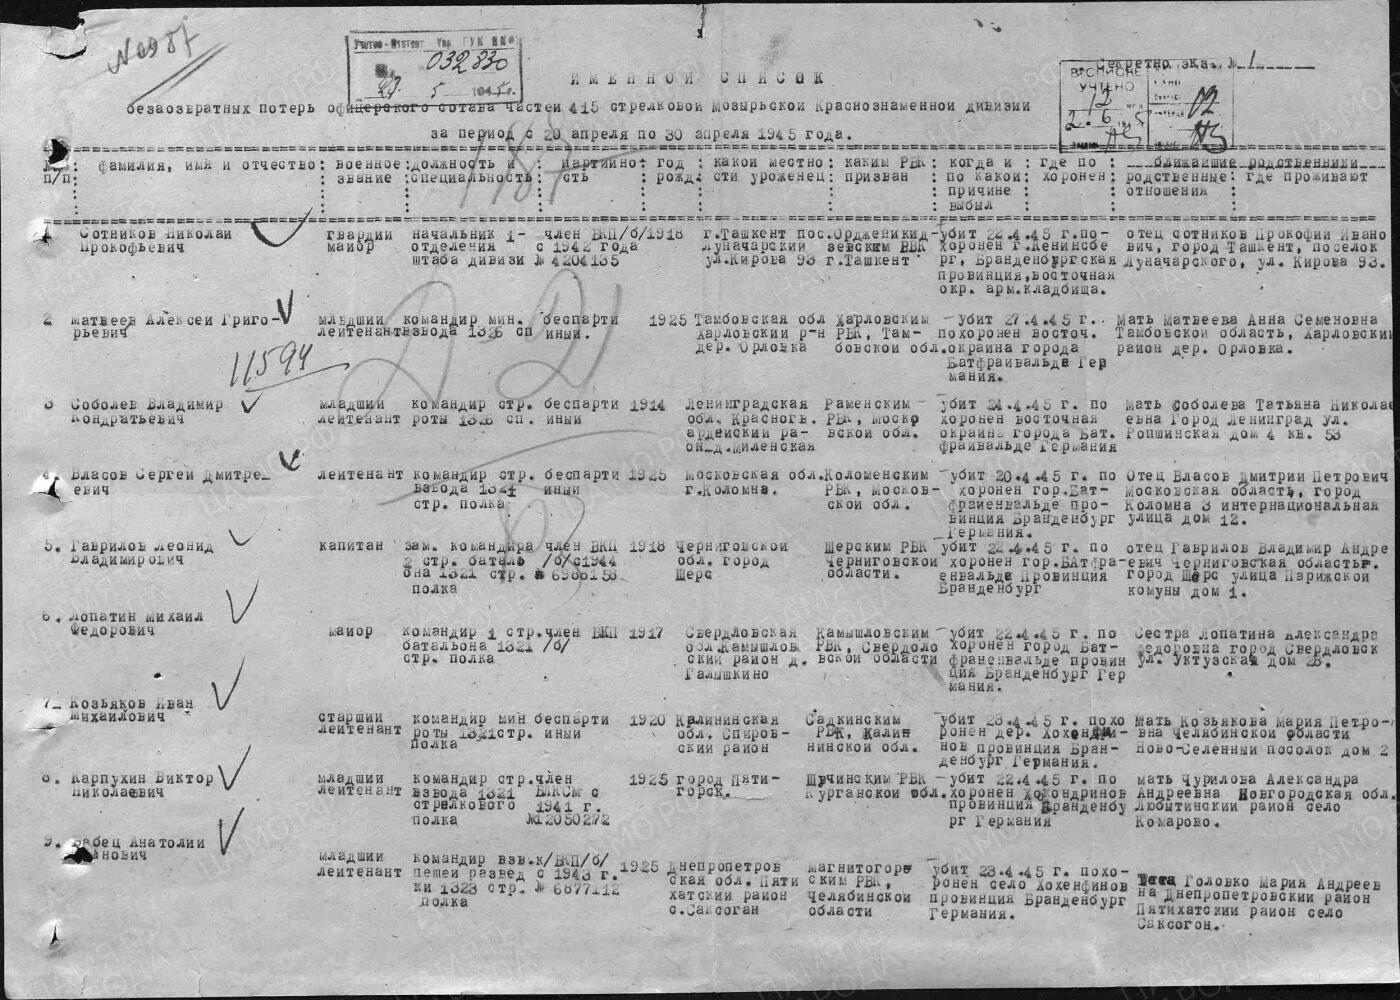 N 0987
Учетно-Статист Упр ГУК НКО
032830
27 5 1945г.
Секретно экз. № 1
В СПИСКЕ УЧТЕНО
2.6.
02
ИМЕННОЙ СПИСОК
безвозвратных потерь офицерского сотава частей 415 стрелковой Мозырьской Краснознаменной дивизии
за период с 20 апреля по 30 апреля 1945 года.
п/п: фамилия, имя и отчество: военное звание: должность и специальность: партийность: год рожд.: какой местности уроженец: каким РВК призван: когда и по какой причине выбыл: где похоронен: ближайшие родственники
родственные отношения: где проживают
187
1 Сотников Николай Прокофьевич
гвардии майор
начальник 1-отделения штаба дивизи
член ВКП/б/ с 1942 года № 4204135
1918
г.Ташкент пос. Луначарский ул.Кирова 93
Орджоникидзевским РВК г.Ташкент
убит 22.4.45 г.похоронен г.Кенинсберг, Бранденбургская провинция,восточная окр. арм.кладбища.
отец Сотников Прокофий Иванович, город Ташкент, поселок Луначарского, ул. Кирова 93.
2 Матвеев Алексей Григорьевич
11594
младший лейтенант
командир мин. взвода 1326 сп
беспартиный.
1925
Тамбовская обл Харловский р-н дер. Орловка
Харловским РВК, Тамбовской обл.
убит 27.4.45 г. похоронен восточ. окраина города Батфрайвальде Германия.
Мать Матвеева Анна Семеновна Тамбовской область, Харловский район дер. Орловка.
3 Соболев Владимир Кондратьевич
младший лейтенант
командир стр. роты 1326 сп.
беспартиный
1914
Ленинградская обл. Красногвардейский район д.Миленская
Раменским РВК, московской обл.
убит 24.4.45 г. похоронен восточная окраина города Бат.фрайвальде Германия
Мать Соболева Татьяна Николаевна Город Ленинград ул. Ропшинская дом 4 кв. 53
4. Власов Сергей Дмитревич
лейтенант
командир стр. взвода 1321 стр. полка
беспартиный
1925
Московская обл. г.Коломна.
Коломенским РВК, Московской обл.
убит 20.4.45 г. похоронен гор.Батфрайенвальде провинция Бранденбург Германия.
Отец Власов Дмитрий Петрович Московская область, город Коломна 3 интернациональная улица дом 12.
5. Гаврилов Леонид Владимирович
капитан
зам. командира 2 стр. батальона 1321 стр. полка
член ВКП /б/с1944 № 6986158
1918
Черниговской обл. город Щерс
Щерским РВК Черниговской области.
убит 22.4.45 г. похоронен гор.БАтфраенвальде Провинция Бранденбург
отец Гаврилов Владимир Андреевич Черниговская область. город Щерс улица Парижской комуны дом 1.
6. Лопатин Михаил Федорович
майор
командир 1 стр. батальона 1321 стр. полка
член ВКП /б/
1917
Свердловская обл.Камышловский район д. Галышкино
Камышловским РВК, Свердловской области
убит 22.4.45 г. похоронен город Батфраненвальде провинция Бранденбург Германия.
Сестра Лопатина Александра Федоровна город Свердловск ул. Уктузская дом 28.
7 Козьяков Иван Михайлович
старший лейтенант
командир мин роты 1321стр. полка
беспартиный
1920
Калининская обл. Спировский район
Садкинским РВК, Калининской обл.
убит 23.4.45 г. похоронен дер. Хохендринов провинция Бранденбург Германия.
Мать Козьякова Мария Петровна Челябинской области Ново-Селенный посолок дом 2
8. Карпухин Виктор Николаевич
младший лейтенант
командир стр. взвода 1321 стрелкового полка
член ВЛКСМ с 1941 г. №12050272
1925
город Пятигорск.
Щучинским РВК Курганской обл.
убит 22.4.45 г. похоронен Хохондринов провинция Бранденбург Германия
мать Чурилова Александра Андреевна Новгородская обл. Любытинский район село Комарово.
9. Бабец Анатолий Иванович
младший лейтенант
командир взв. пешей разведки 1323 стр. полка
к/ВКП/б/ с 1943 г. № 6877112
1925
Днепропетровская обл. Пятихатский район с.Саксоган
Магнитогорским РВК, Челябинской области
убит 23.4.45 г. похоронен село Хохенфинов провинция Бранденбург Германия.
Тета Головко Мария Андреевна Днепропетровский район Пятихатский район село Саксогон.